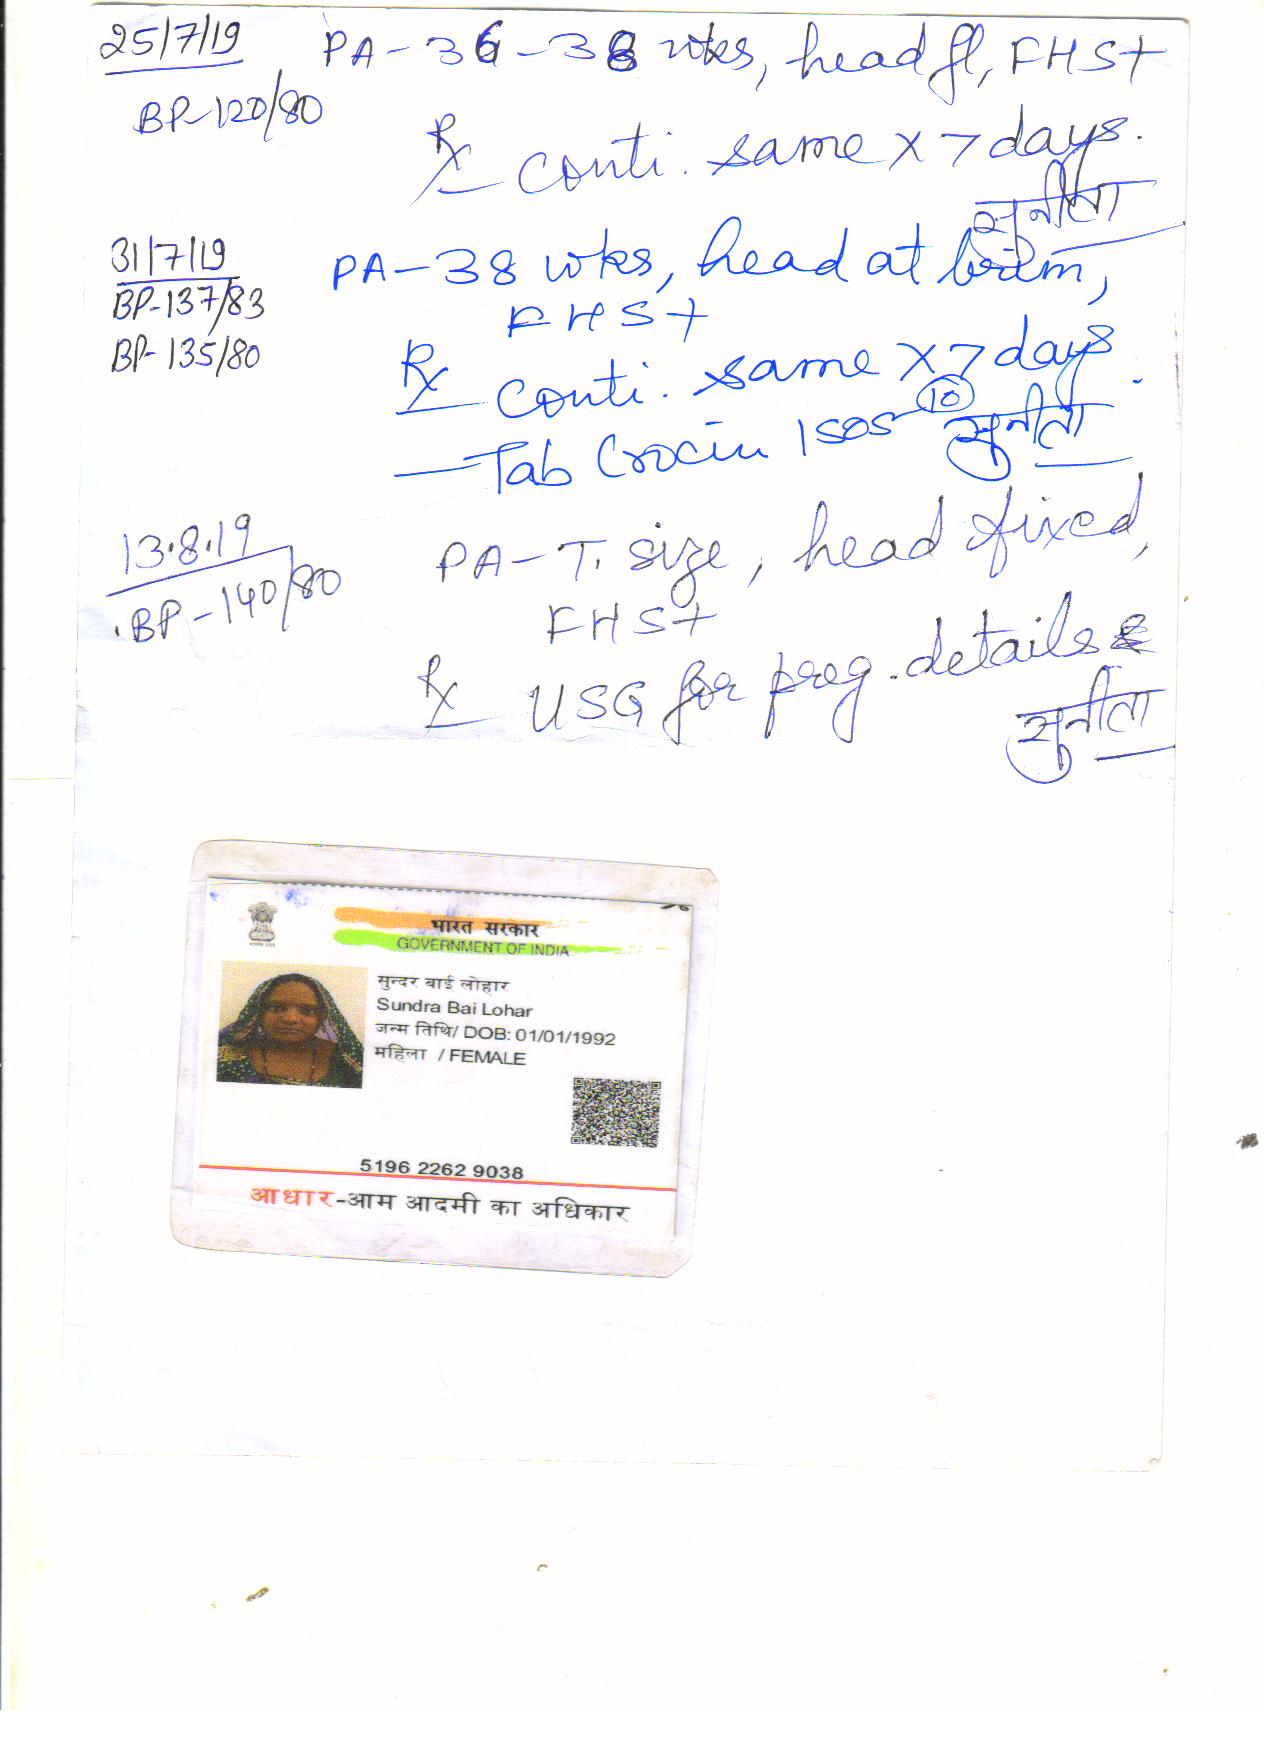 25/7/19 PA-36-38 wks, head fl, FHS+
BP-120/80
Rx conti. same x 7 days.
सुनीता
31/7/19 PA-38 wks, head at brim,
BP-137/83 FHS+
BP-135/80 Rx conti. same x 7 days.
Tab Crocin 1 SOS 10 सुनीता
13.8.19 PA-T. size, head fixed,
BP-140/80 FHS+
Rx USG for preg. details
सुनीता
भारत सरकार
GOVERNMENT OF INDIA
सुन्दर बाई लोहार
Sundra Bai Lohar
जन्म तिथि/ DOB: 01/01/1992
महिला / FEMALE
5196 2262 9038
आधार-आम आदमी का अधिकार